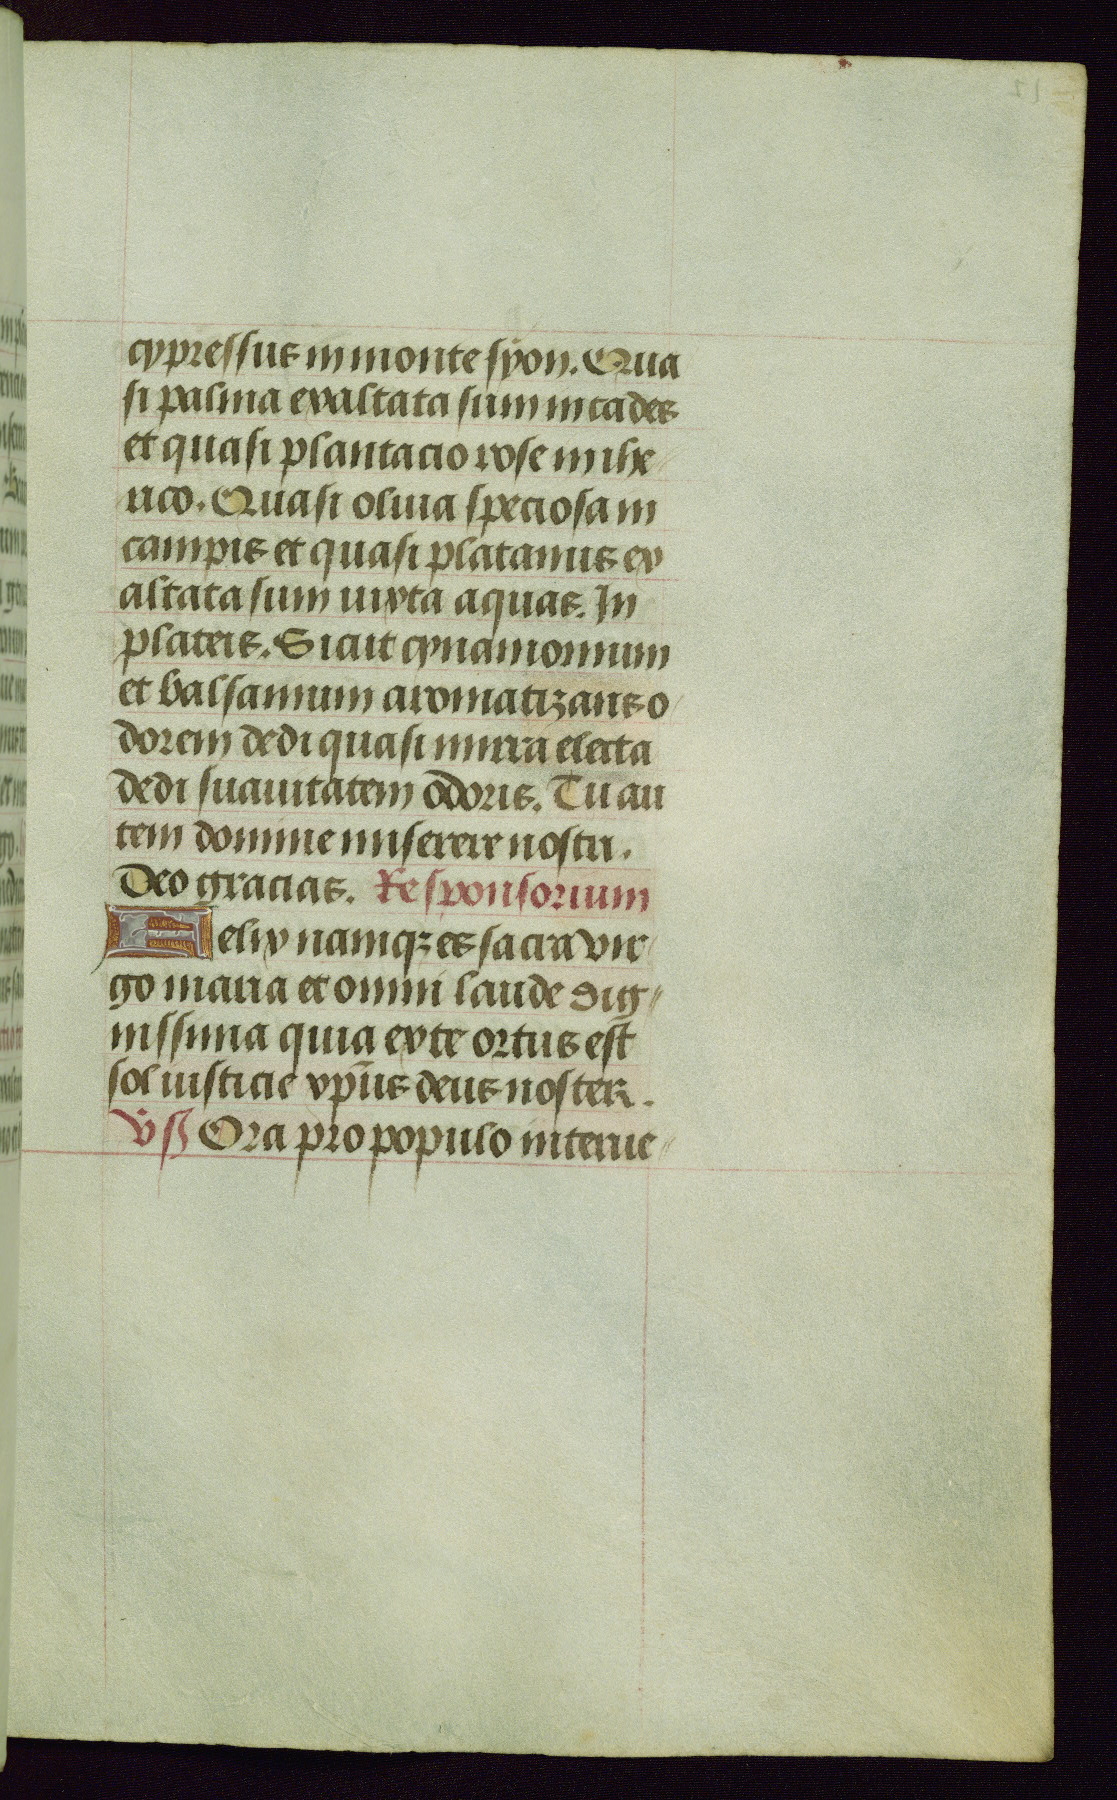 cypressus in monte syon. Qua
si palma exaltata sum in cades
et quasi plantacio rose in ihe
rico. Quasi oliua speciosa in
campis et quasi platanus ex
altata sum iuxta aquas. In
plateis. Sicut cynamomum
et balsamum aromatizans o
dorem dedi quasi mirra electa
dedi suauitatem odoris. Tu au
tem domine miserere nostri.
Deo gracias. Responsorium
Felix namqz es sacra vir
go maria et omni laude dig
nissima quia ex te ortus est
sol iusticie xp̄us deus noster.
v̊s Ora pro populo interue